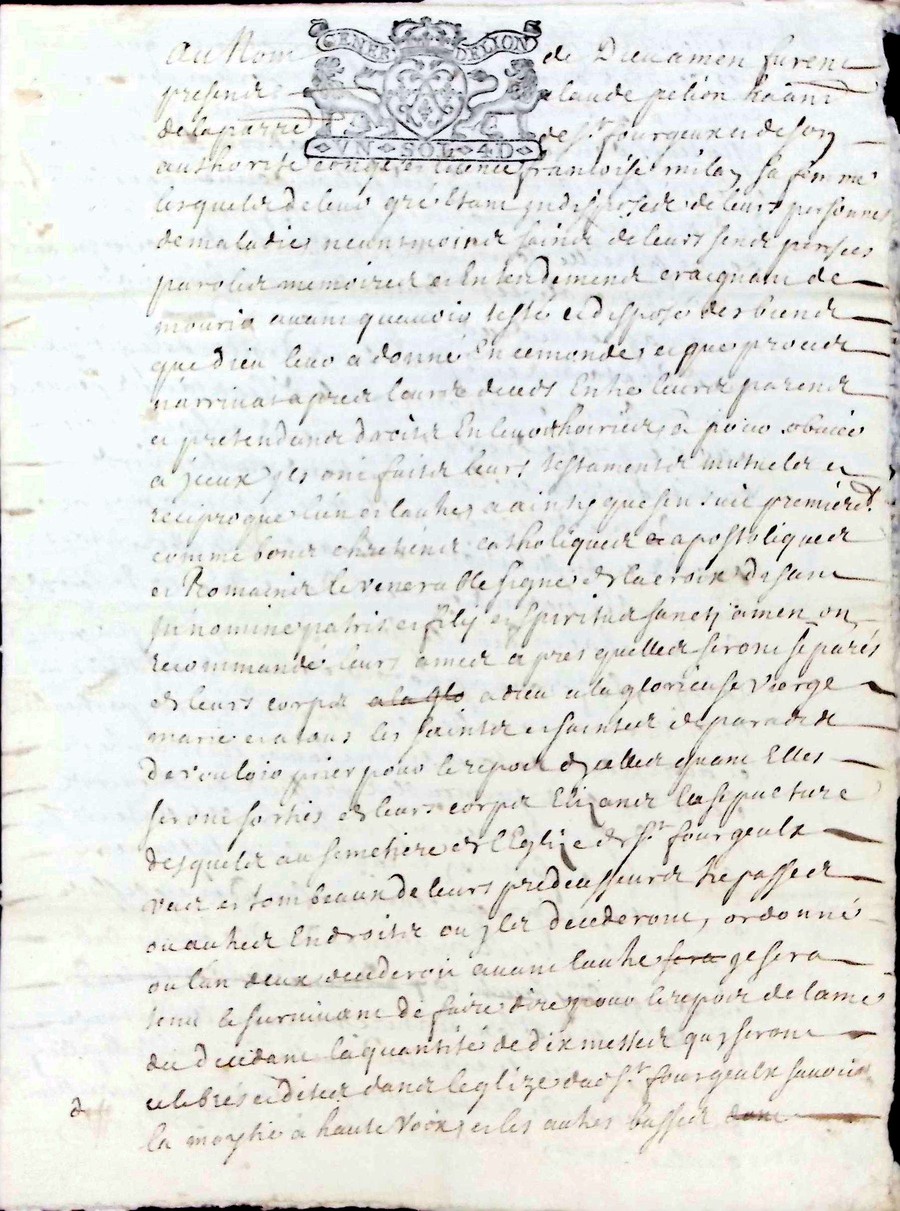 GENER DELION
VN SOL 4D
au Nom de Dieu amen furent
presents Claude pelion
de la parre de St fourgeux et de son
authorité congé et licence francoise mila sa femme
lesquels de leur gré Estant yndisposez de leurs personnes
de maladies neantmoins sains de leurs sens pensées
parolles memoires et Entendements craignant de
mourir avant quavoir testé et disposé des biens
que dieu leur a donné En ce monde, et que proces
narrivat apres leurs deces Entre leurs parents
et pretendants droits En leurs hoiries, a pour obvier
a jceux jls ont faits leurs testaments mutuels et
reciproque lun et lautre, ainsy que sen suit premieremt
comme bons chretiens catholiques et apostoliques
et Romains le venerable signe de la croix disant
jn nomine patris et filij et spiritus sancti amen, on
recommandé leurs ames apres quelles seront separés
de leurs corps a la glo a dieu a la glorieuse vierge
marie et a tous les saints et saintes de paradis
de vouloir prier pour le repos dycelles quant Elles
seront sorties de leurs corps Elizants la sepulture
desquels au semetiere de lEglize de St fourgeulx
et tombeaux de leurs predecesseurs trepasses
ou autres Endroits ou jls decederont, ordonné
ou lun deux decederoit avant lautre sera ge sera
tenu le survivant de faire dire pour le repos de lame
du decedant la quantité de dix messes quy seront
celebrés et dites dans leglize dud St fourgeulx savoir
la moytié a haute voix, et les autres basses dont